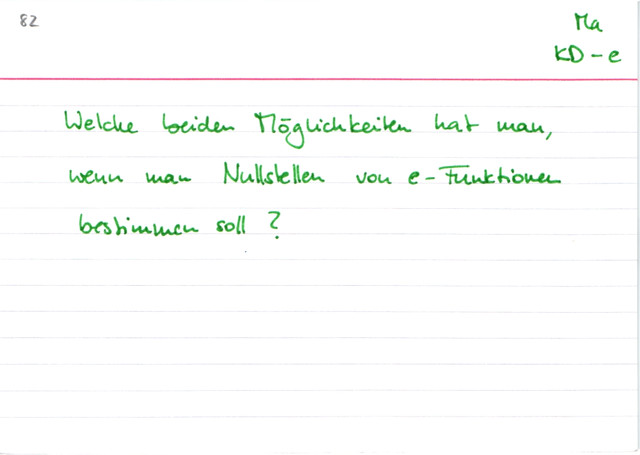 82
Ma
KD - e
Welche beiden Möglichkeiten hat man,
wenn man Nullstellen von e-Funktionen
bestimmen soll ?